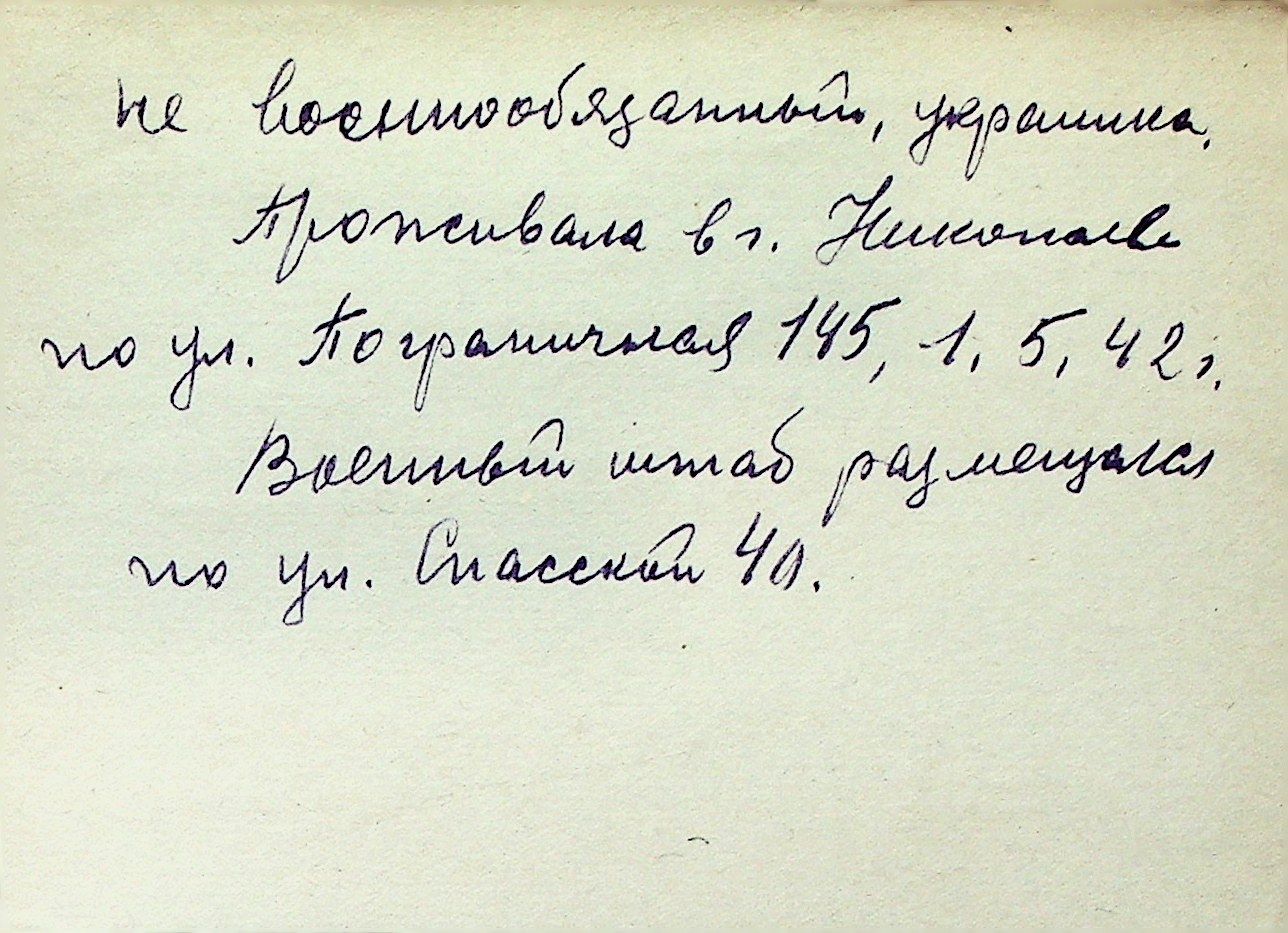 не военнообязанный, украинка.
Проживала в г. Николаеве
по ул. Пограничная 145, 1, 5, 42 г.
Военный штаб размещался
по ул. Спасской 40.